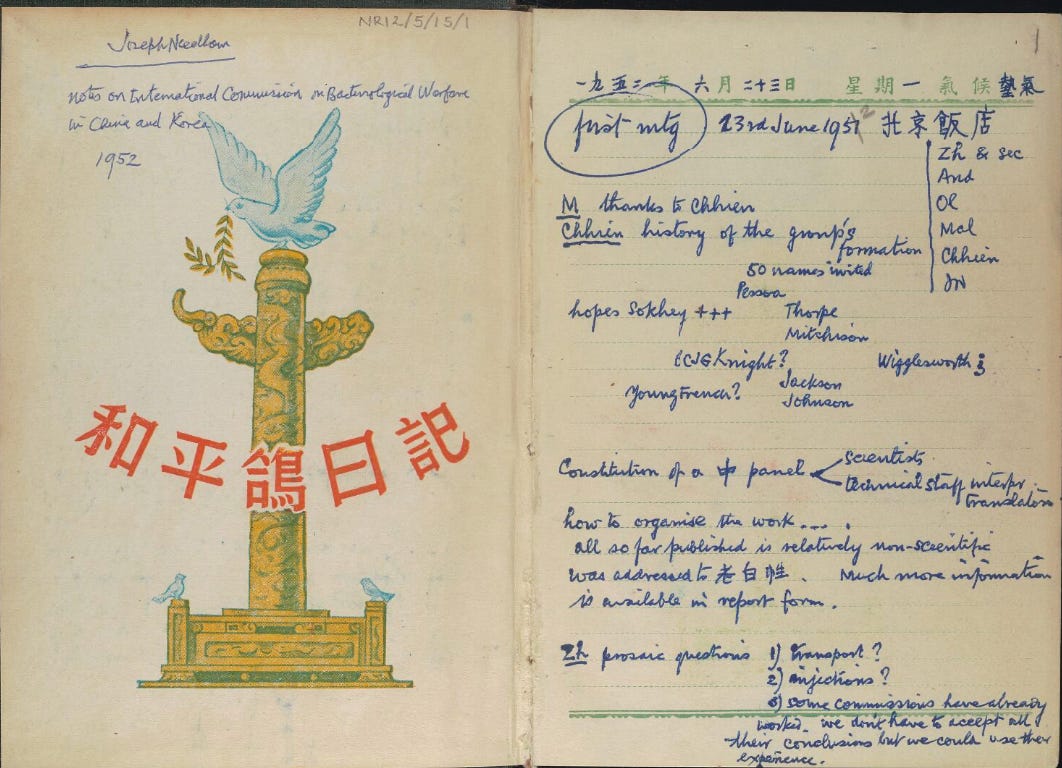 NR12/5/15/1
Joseph Needham
Notes on International Commission on Bacteriological Warfare
in China and Korea
1952
和平鴿日記
1
一九五二年 六月二十三日 星期一 氣候 熱氣
first mtg 23rd June 1952 北京飯店
Zh & sec
And
Ol
Mal
Chhien
JN
M thanks to Chhien
Chhien history of the group's
formation
50 names invited
Pessoa
hopes Sokhey +++ Thorpe
Mitchison
BCJG Knight? Wigglesworth
Young French? Jackson
Johnson
Constitution of a 中 panel
scientists
technical staff interpr.
translators
how to organise the work....
all so far published is relatively non-scientific
was addressed to 老白姓. Much more information
is available in report form.
Zh prosaic questions 1) transport?
2) injections?
3) some commissions have already
worked. we don't have to accept all
their conclusions but we could use their
experience.